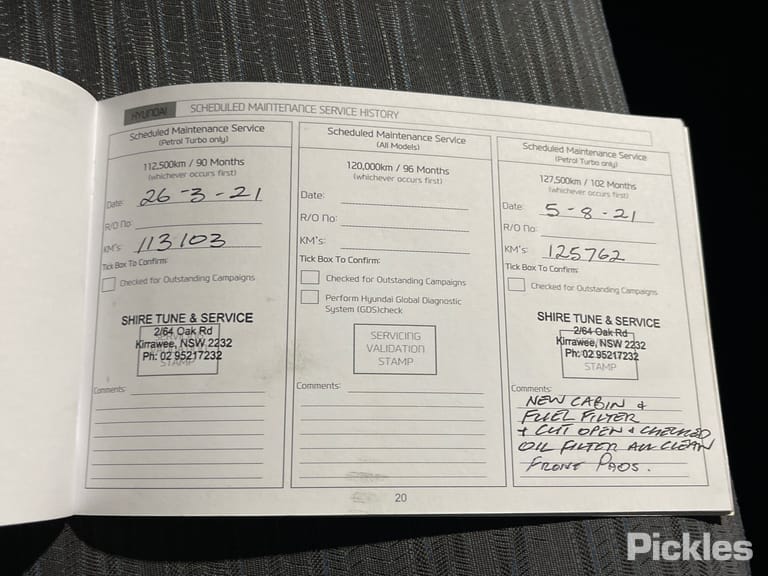 HYUNDAI SCHEDULED MAINTENANCE SERVICE HISTORY
Scheduled Maintenance Service
(Petrol Turbo only)
112,500km / 90 Months
(whichever occurs first)
Date: 26-3-21
R/O No:
KM's: 113103
Tick Box To Confirm:
Checked for Outstanding Campaigns
SHIRE TUNE & SERVICE
2/64 Oak Rd
Kirrawee, NSW 2232
Ph: 02 95217232
Comments:
Scheduled Maintenance Service
(All Models)
120,000km / 96 Months
(whichever occurs first)
Date:
R/O No:
KM's:
Tick Box To Confirm:
Checked for Outstanding Campaigns
Perform Hyundai Global Diagnostic
System (GDS)check
SERVICING
VALIDATION
STAMP
Comments:
Scheduled Maintenance Service
(Petrol Turbo only)
127,500km / 102 Months
(whichever occurs first)
Date: 5-8-21
R/O No:
KM's: 125762
Tick Box To Confirm:
Checked for Outstanding Campaigns
SHIRE TUNE & SERVICE
2/64 Oak Rd
Kirrawee, NSW 2232
Ph: 02 95217232
STAMP
Comments:
NEW CABIN &
FUEL FILTER
+ CUT OPEN & CHECKED
OIL FILTER ALL CLEAN
FRONT PADS.
20
Pickles